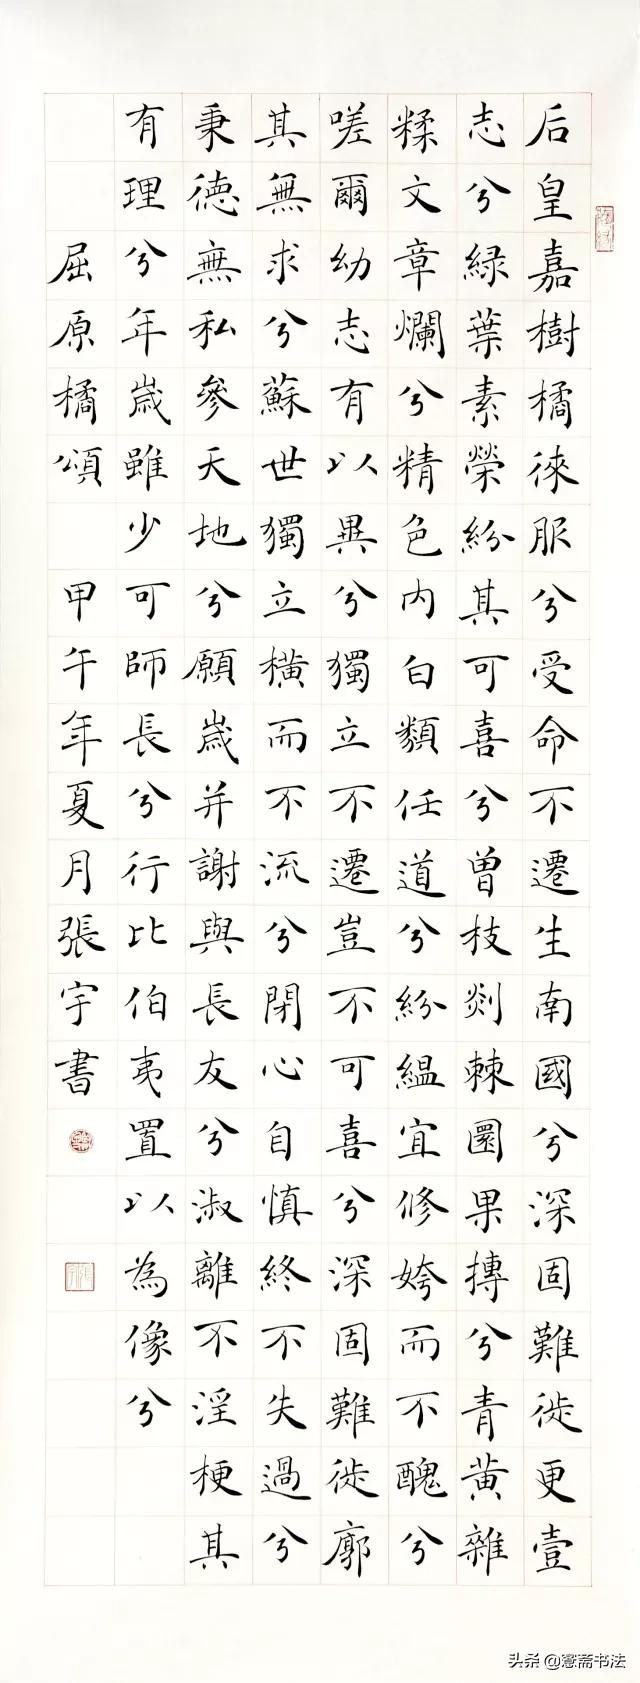 后皇嘉樹橘徠服兮受命不遷生南國兮深固難徙更壹
志兮緑葉素榮紛其可喜兮曾枝剡棘圜果摶兮青黄雜
糅文章爛兮精色内白類任道兮紛緼宜修姱而不醜兮
嗟爾幼志有以異兮獨立不遷豈不可喜兮深固難徙廓
其無求兮蘇世獨立横而不流兮閉心自慎終不失過兮
秉德無私參天地兮願歲并謝與長友兮淑離不淫梗其
有理兮年歲雖少可師長兮行比伯夷置以為像兮
屈原橘頌 甲午年夏月張宇書
头条 @寋斋书法